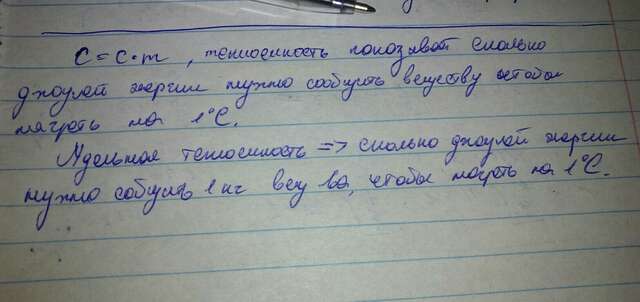 C = c·m, теплоемкость показывает сколько
джоулей энергии нужно сообщить веществу чтобы
нагреть на 1°C.
Удельная теплоемкость => сколько джоулей энергии
нужно сообщить 1 кг вещ-ва, чтобы нагреть на 1°C.